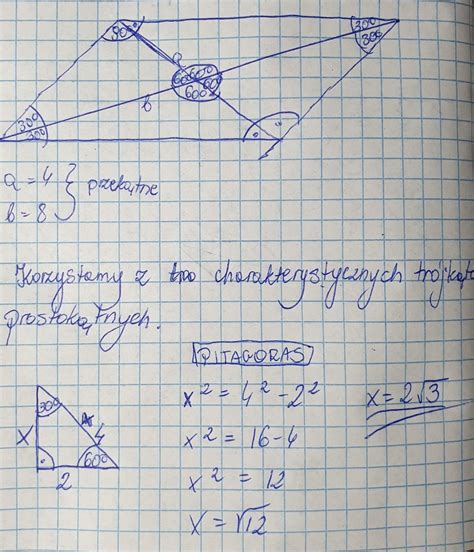 90° 30°
30°
a
60° 60°
60° 60°
30° b
30°
a = 4
b = 8 } przekątne
Korzystamy z charakterystycznych trójkątó
prostokątnych.
PITAGORAS
x² = 4² - 2² x = 2√3
x² = 16 - 4
x² = 12
x = √12
30°
x 4
60°
2